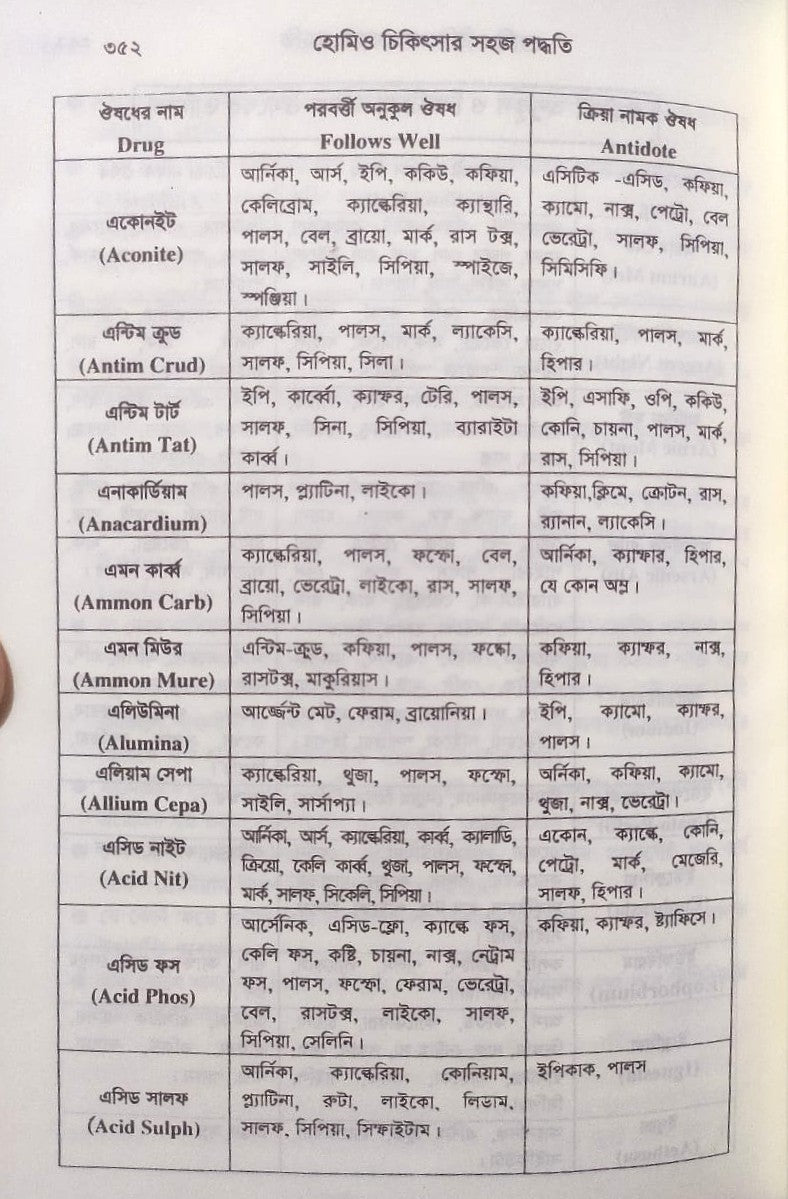 ৩৫২
হোমিও চিকিৎসার সহজ পদ্ধতি
ঔষধের নাম
Drug
পরবর্ত্তী অনুকুল ঔষধ
Follows Well
ক্রিয়া নামক ঔষধ
Antidote
একোনইট
(Aconite)
আর্নিকা, আর্স, ইপি, ককিউ, কফিয়া,
কেলিব্রোম, ক্যাল্কেরিয়া, ক্যান্থারি,
পালস, বেল, ব্রায়ো, মার্ক, রাস টক্স,
সালফ, সাইলি, সিপিয়া, স্পাইজে,
স্পঞ্জিয়া।
এসিটিক -এসিড, কফিয়া,
ক্যামো, নাক্স, পেট্রো, বেল
ভেরেট্রা, সালফ, সিপিয়া,
সিমিসিফি।
এন্টিম ক্রুড
(Antim Crud)
ক্যাল্কেরিয়া, পালস, মার্ক, ল্যাকেসি,
সালফ, সিপিয়া, সিলা।
ক্যাল্কেরিয়া, পালস, মার্ক,
হিপার।
এন্টিম টার্ট
(Antim Tat)
ইপি, কার্ব্বো, ক্যাম্ফর, টেরি, পালস,
সালফ, সিনা, সিপিয়া, ব্যারাইটা
কার্ব্ব।
ইপি, এসাফি, ওপি, ককিউ,
কোনি, চায়না, পালস, মার্ক,
রাস, সিপিয়া।
এনাকার্ডিয়াম
(Anacardium)
পালস, প্ল্যাটিনা, লাইকো।
কফিয়া,ক্লিমে, ক্রোটন, রাস,
র‍্যানান, ল্যাকেসি।
এমন কার্ব্ব
(Ammon Carb)
ক্যাল্কেরিয়া, পালস, ফস্ফো, বেল,
ব্রায়ো, ভেরেট্রা, লাইকো, রাস, সালফ,
সিপিয়া।
আর্নিকা, ক্যাম্ফার, হিপার,
যে কোন অম্ল।
এমন মিউর
(Ammon Mure)
এন্টিম-ক্রুড, কফিয়া, পালস, ফস্ফো,
রাসটক্স, মাকুরিয়াস।
কফিয়া, ক্যাম্ফর, নাক্স,
হিপার।
এলিউমিনা
(Alumina)
আর্জ্জেন্ট মেট, ফেরাম, ব্রায়োনিয়া।
ইপি, ক্যামো, ক্যাম্ফর,
পালস।
এলিয়াম সেপা
(Allium Cepa)
ক্যাল্কেরিয়া, থুজা, পালস, ফস্ফো,
সাইলি, সার্সাপ্যা।
অর্নিকা, কফিয়া, ক্যামো,
থুজা, নাক্স, ভেরেট্রা।
এসিড নাইট
(Acid Nit)
আর্নিকা, আর্স, ক্যাল্কেরিয়া, কার্ব্ব, ক্যালাডি,
ক্রিয়ো, কেলি কার্ব্ব, থুজা, পালস, ফস্ফো,
মার্ক, সালফ, সিকেলি, সিপিয়া।
একোন, ক্যাল্কে, কোনি,
পেট্রো, মার্ক, মেজেরি,
সালফ, হিপার।
এসিড ফস
(Acid Phos)
আর্সেনিক, এসিড-ফ্লো, ক্যাল্কে ফস,
কেলি ফস, কষ্টি, চায়না, নাক্স, নেট্রাম
ফস, পালস, ফস্ফো, ফেরাম, ভেরেট্রা,
বেল, রাসটক্স, লাইকো, সালফ,
সিপিয়া, সেলিনি।
কফিয়া, ক্যাম্ফর, ষ্ট্যাফিসে।
এসিড সালফ
(Acid Sulph)
আর্নিকা, ক্যাল্কেরিয়া, কোনিয়াম,
প্ল্যাটিনা, রুটা, লাইকো, লিডাম,
সালফ, সিপিয়া, সিম্ফাইটাম।
ইপিকাক, পালস